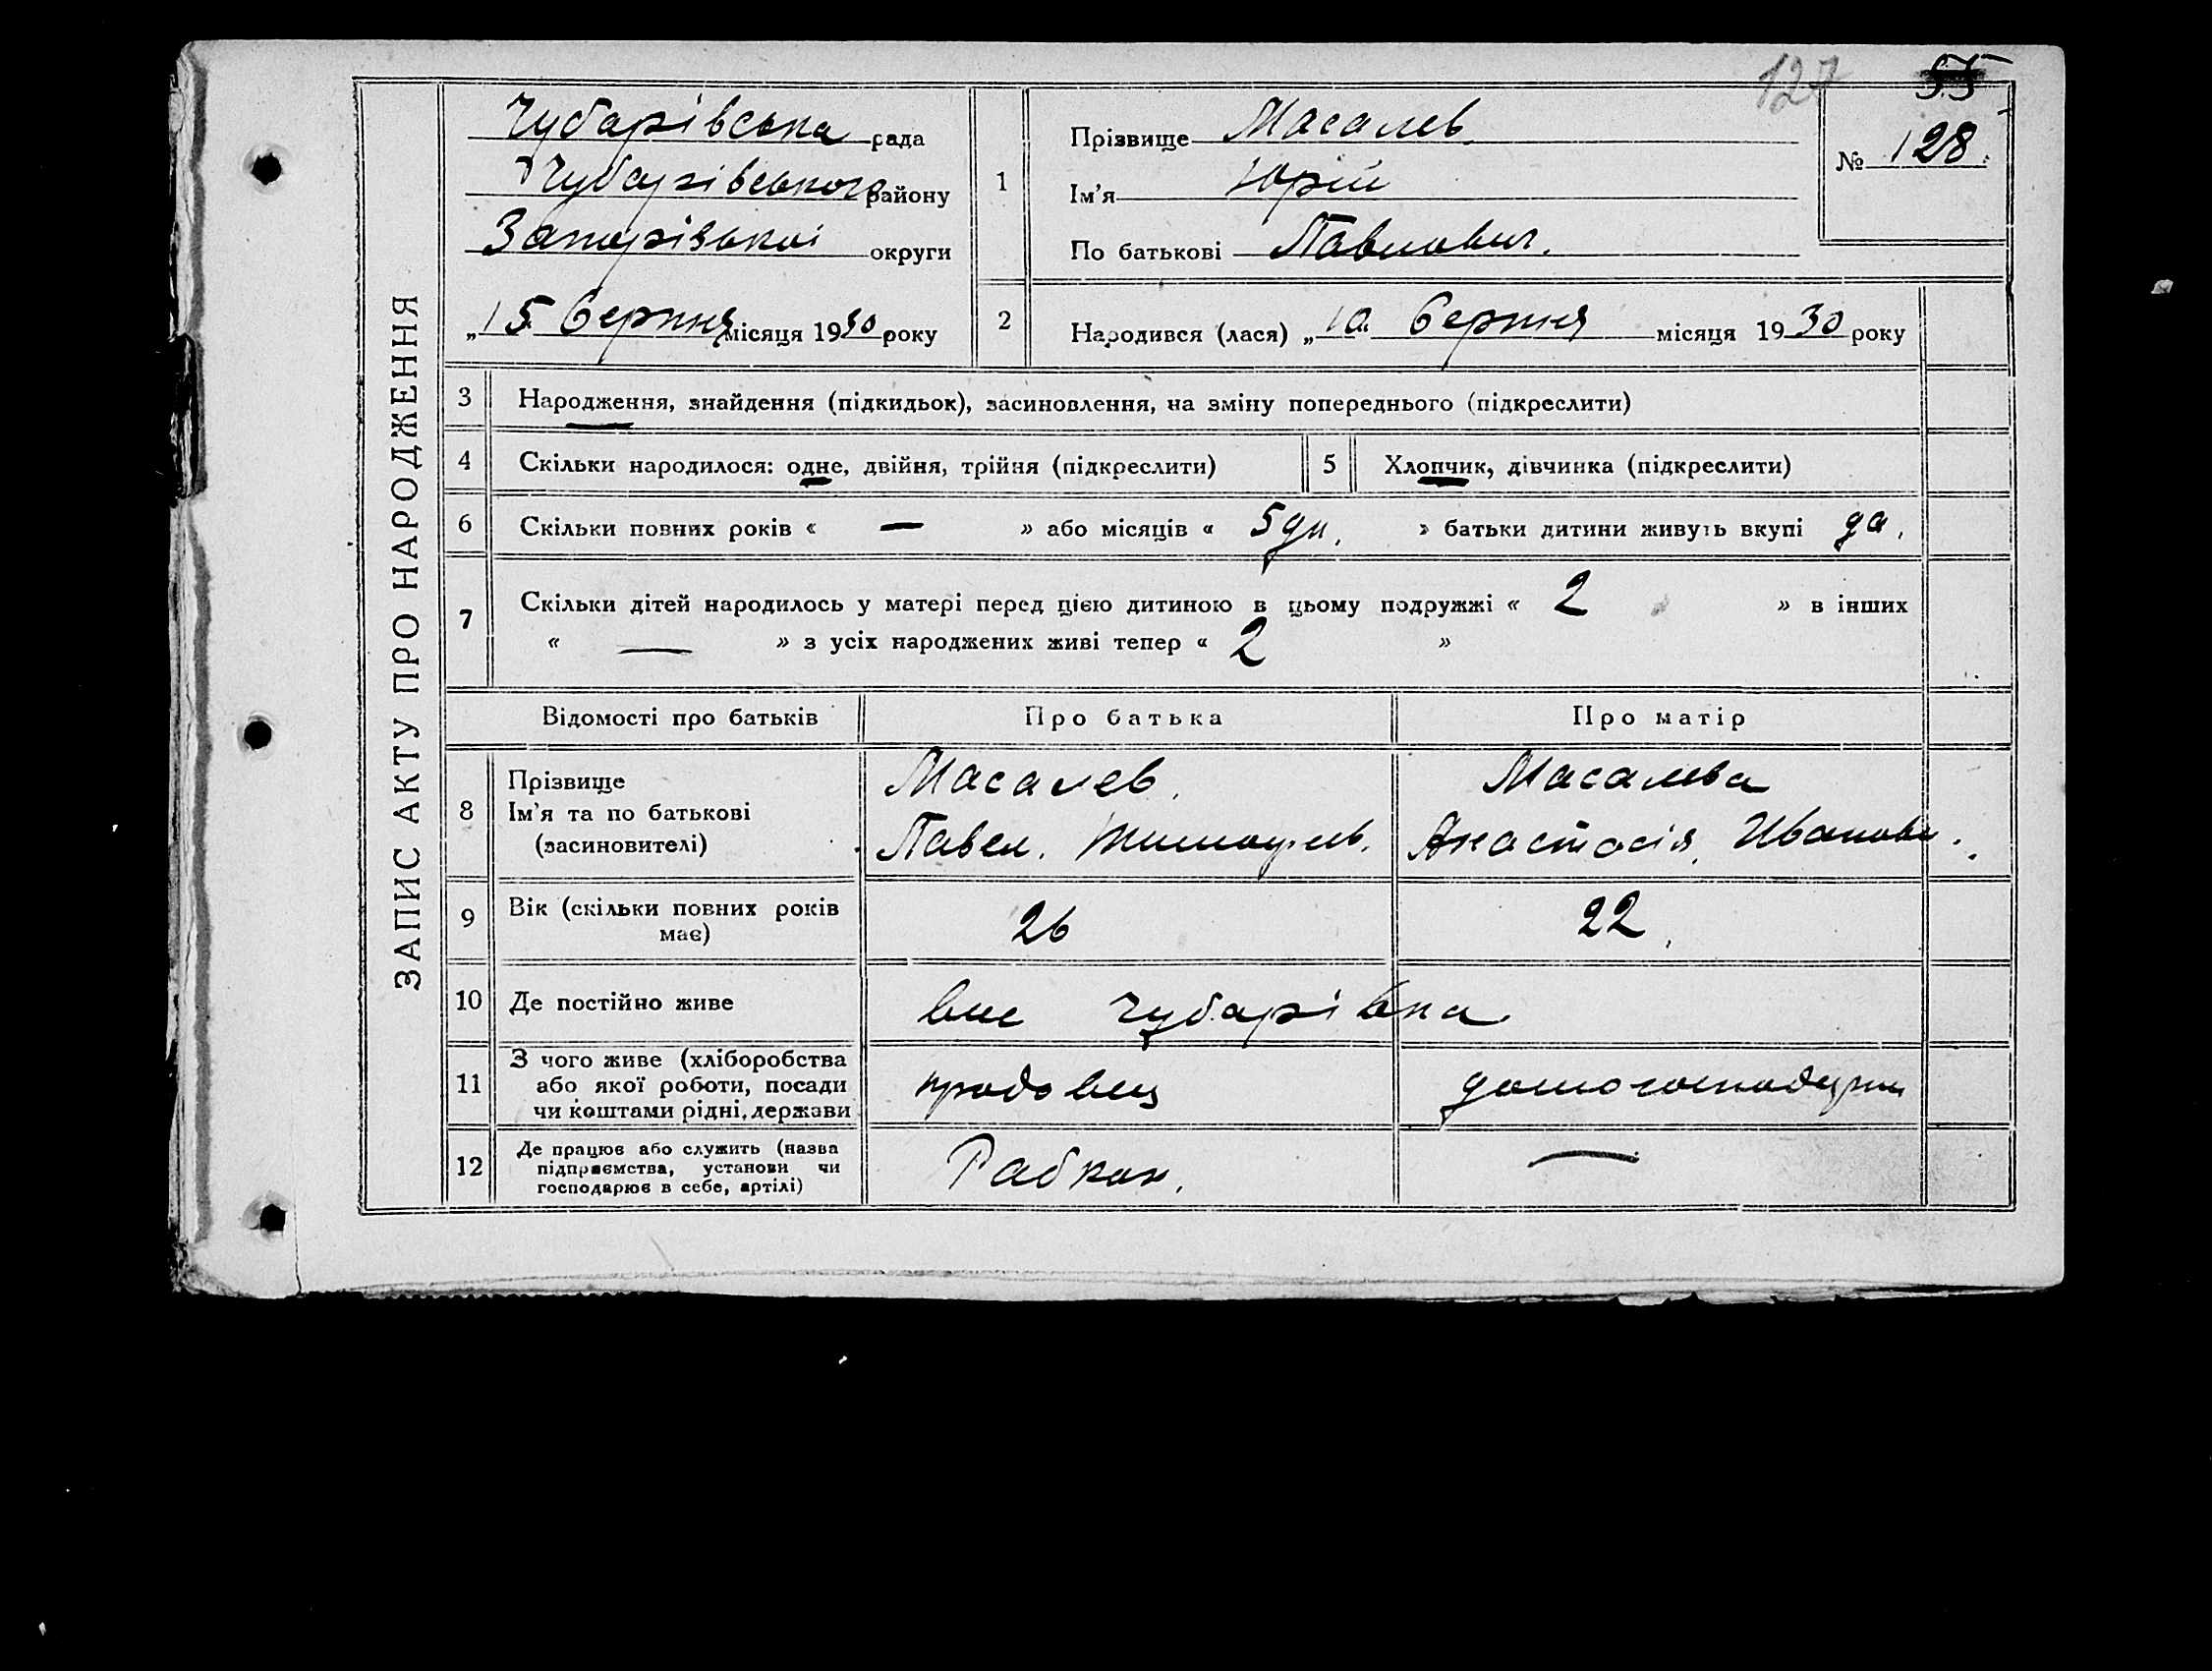 127
55
ЗАПИС АКТУ ПРО НАРОДЖЕННЯ
Чубарівська рада
Чубарівського району
Запорізької округи
„15 Серпня місяця 1930 року
1
Прізвище Масалев
Ім'я Юрій
По батькові Павлович.
№ 128.
2
Народився (лася) „10 Серпня місяця 1930 року
3 Народження, знайдення (підкидьок), засиновлення, на зміну попереднього (підкреслити)
4 Скільки народилося: одне, двійня, трійня (підкреслити) 5 Хлопчик, дівчинка (підкреслити)
6 Скільки повних років « — » або місяців « 5 дн. » батьки дитини живуть вкупі да.
7 Скільки дітей народилось у матері перед цією дитиною в цьому подружжі « 2 » в інших
« — » з усіх народжених живі тепер « 2 »
Відомості про батьків Про батька Про матір
8
Прізвище
Ім'я та по батькові
(засиновителі)
Масалев.
Павел.
Масалева
Анастасія Иванов.
9 Вік (скільки повних років
має)
26
22.
10 Де постійно живе
Чубарівка
11
З чого живе (хліборобства
або якої роботи, посади
чи коштами рідні, держави
продовец
домогосподарки
12
Де працює або служить (назва
підприємства, установи чи
господарює в себе, артілі)
Рабкоп.
—